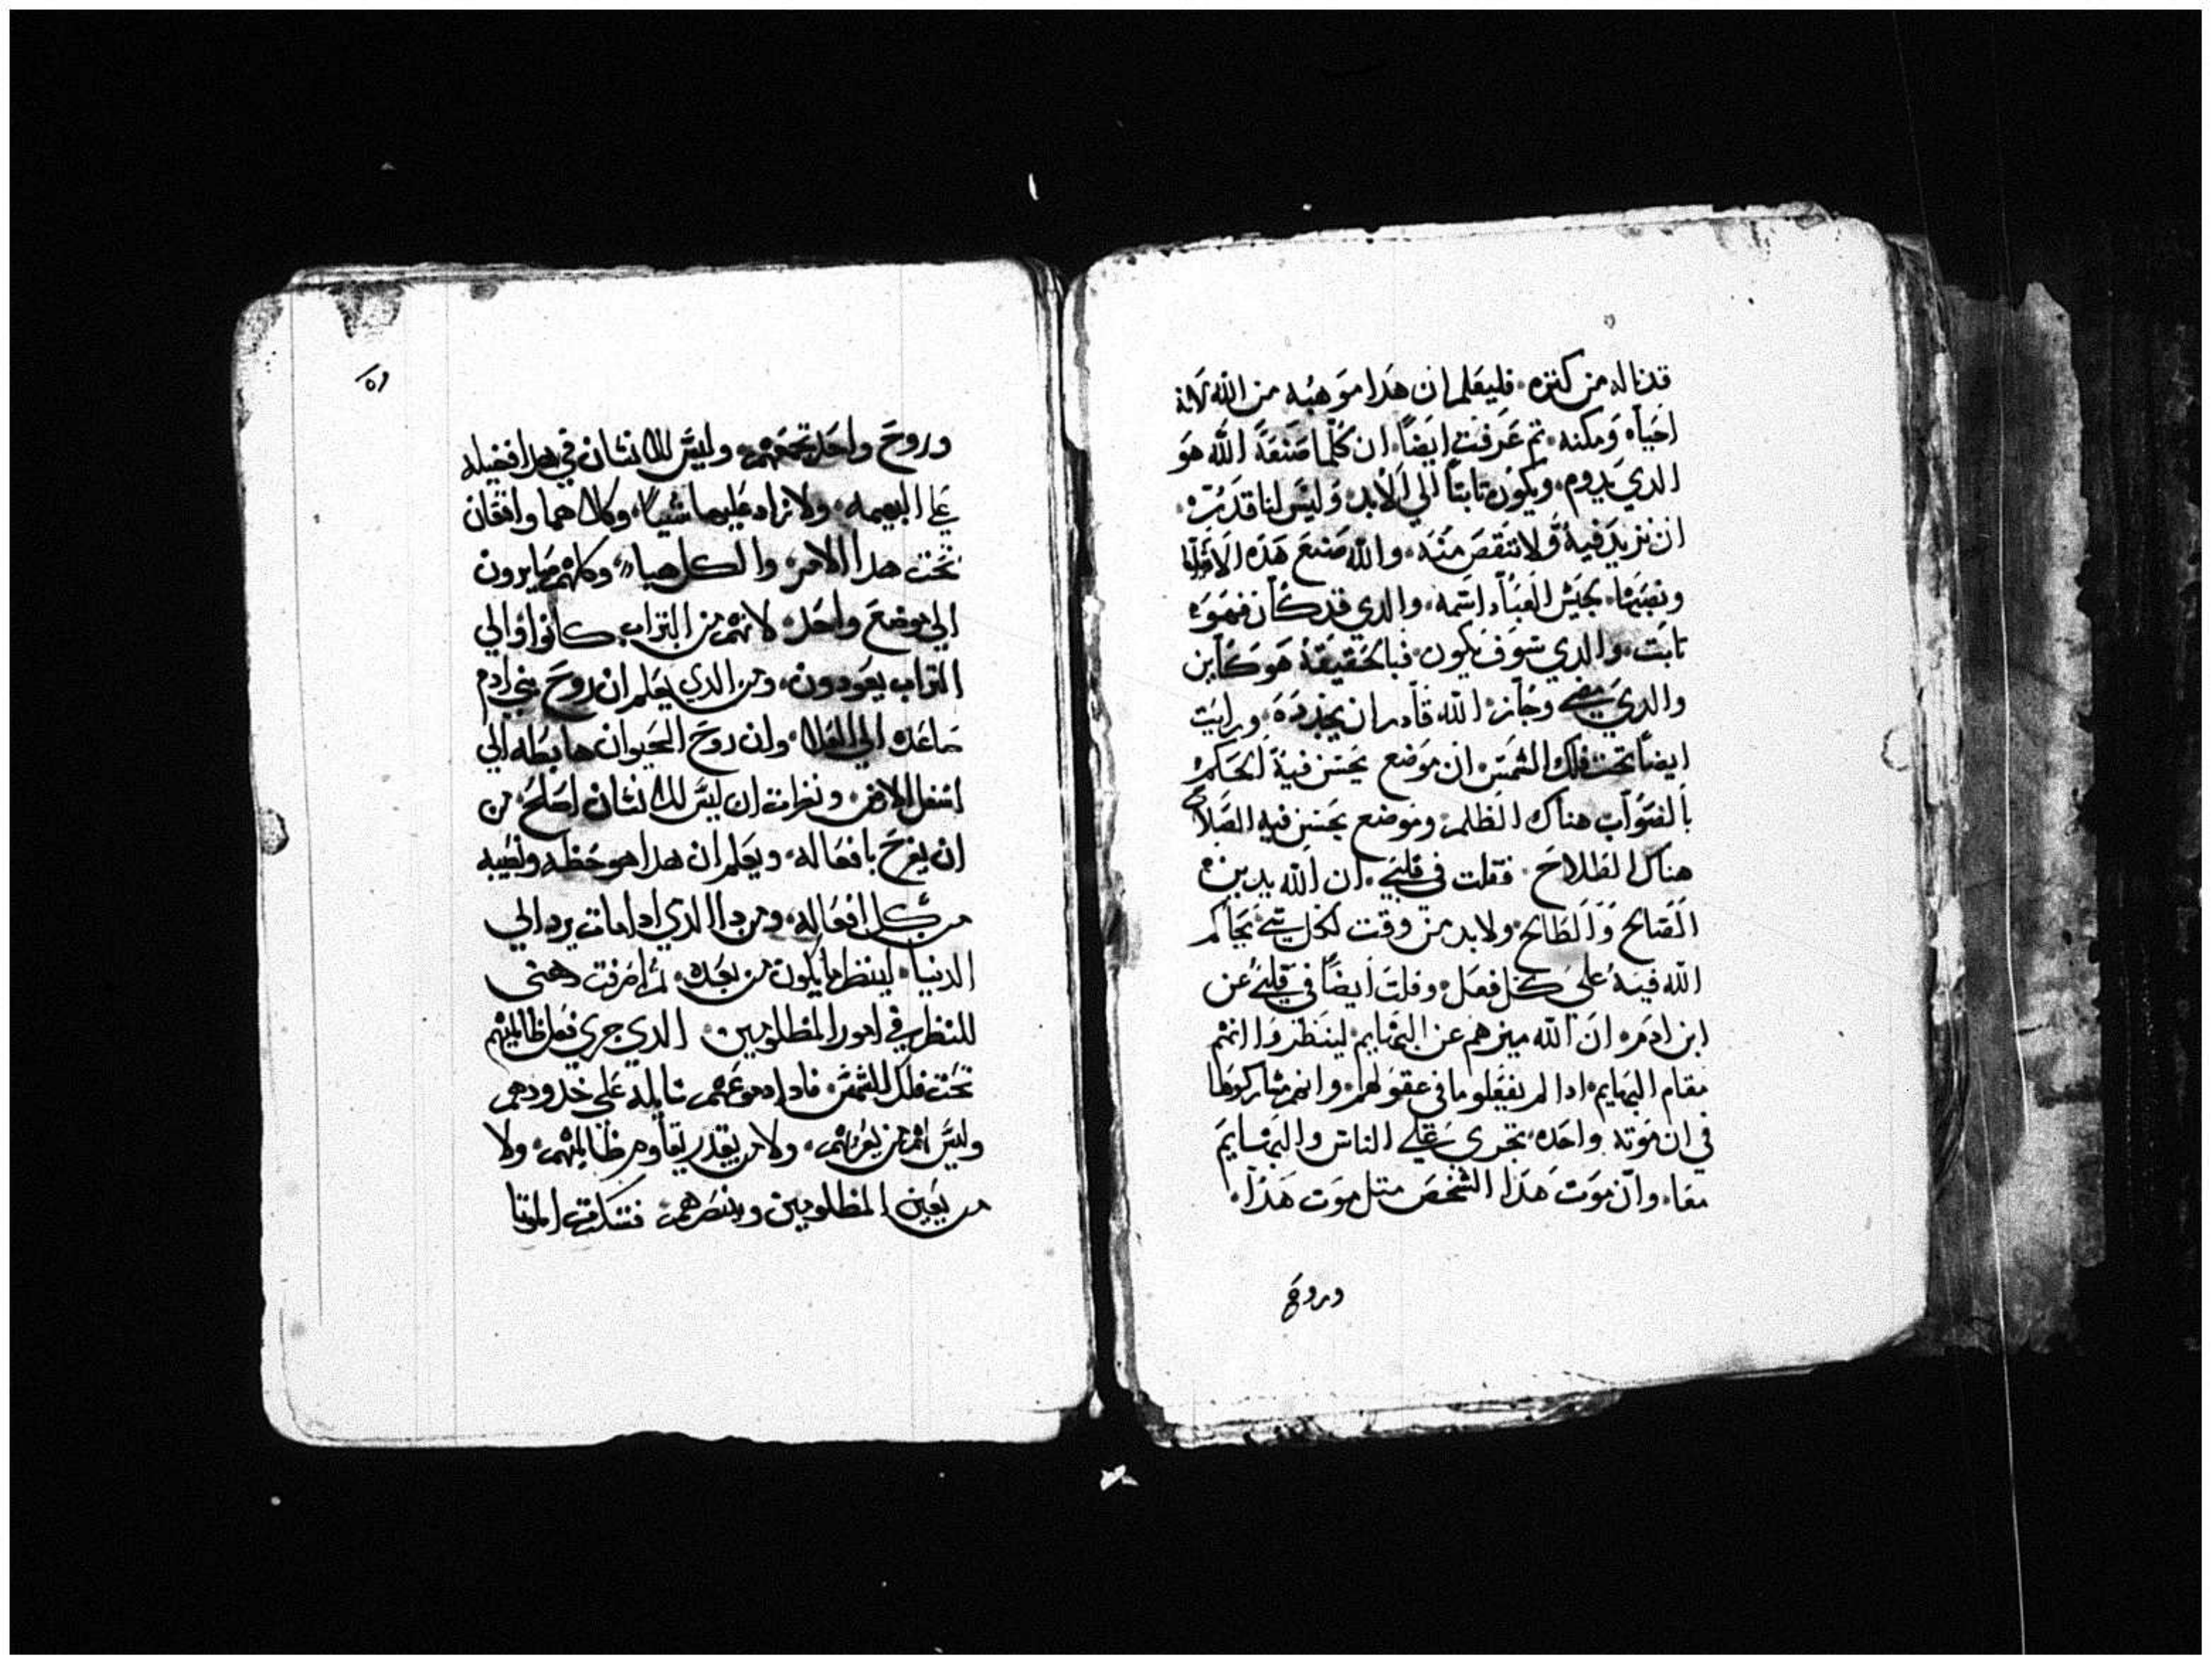 قدناله من كنزه فليعلم ان هدا موهبه من الله لانه
احياه ومكنه تم عرفت ايضاً ان كلما صنعة الله هو
الدي يدوم ويكون تابتاً الي الابد وليس لنا قدرت
ان نزيد فية ولا ننقص منه والله صنع هده
العباد اسمه والدي قد كان فهو
تابت والدي سوف يكون فبالحقيقة هو كاين
والدي مضي وجاز الله قادر ان يجدده ورايت
ايضاً تحت فلك الشمس ان موضع يحسن فية الحكم
بالصواب هناك الظلم وموضع يحسن فيه الصلاح
هناك الطلاح فقلت في قلبي ان الله يدين
الصالح والطالح ولابد من وقت لكل شي يحاكم
الله فية على كل فعل وقلت ايضاً في قلبي عن
ابن ادم ان الله ميزهم عن البهايم لينظروا انهم
مقام البهايم ادا لم يفعلو ما في عقولهم وانهم مشاركوها
في ان موته واحده تجرى علي الناس والبهايم
معا وان موت هدا الشخص متل موت هدا
وروح
وروح واحد تجمعهم وليس للانسان في هدا افضيله
علي البهيمه ولا نراد عليها شياً وكلاهما واقفان
تحت هدا الامر والكل هباء وكلهم صايرون
الي موضع واحد لانهم من التراب كانوا والي
التراب يعودون ومن الدي يعلم ان روح بني ادم
صاعده الي العلا وان روح الحيوان هابطه الي
اسفل الارض ونظرت ان ليس للانسان اصلح من
ان يفرح بافعاله ويعلم ان هدا هو حظه ونصيبه
من كل افعاله ومن دا الدي ادا مات يرد الي
الدنيا لينظر ما يكون من بعده تم اصرفت دهني
للنظر في امور المظلومين الدي جري فعل ظالميهم
تحت فلك الشمس فادا دموعهم سايله على خدودهم
وليس لهم من يعزيهم ولا من يقدر يقاوم ظالميهم ولا
من يعين المظلومين وينصرهم فشكرت الموتا